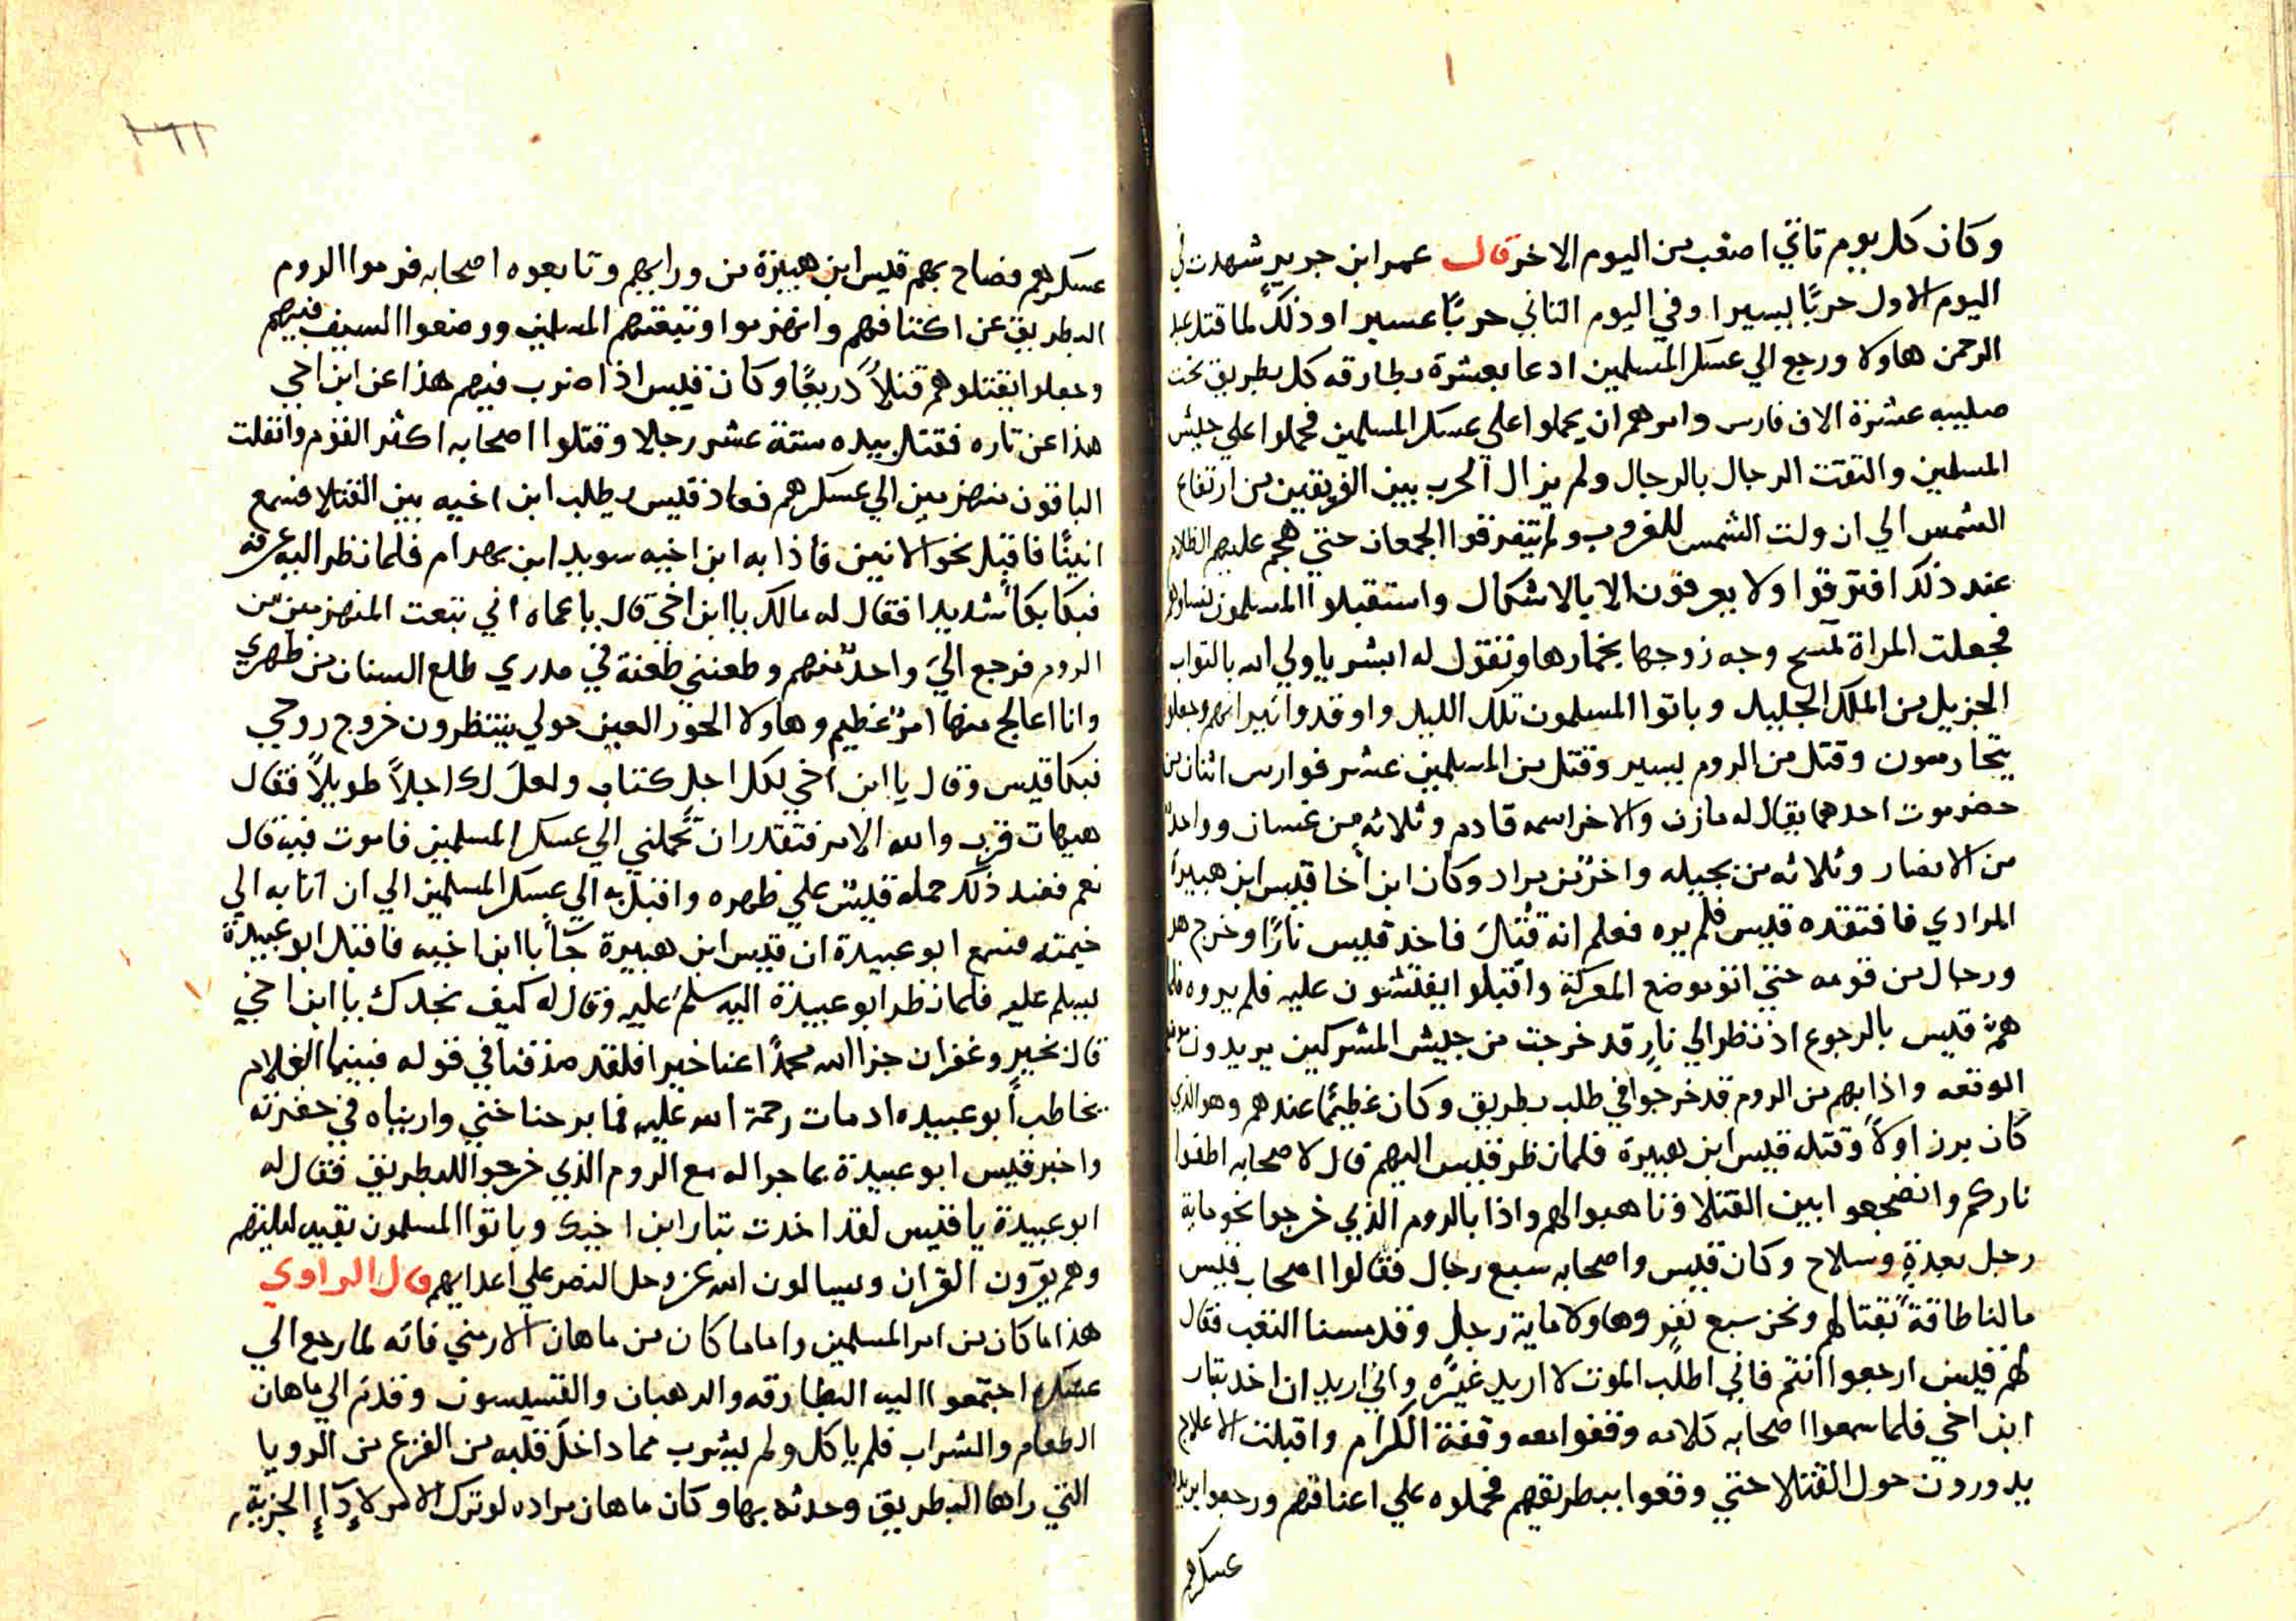 وكان كل يوم تاتي اصعب من اليوم الاخر قال عمر ابن جرير شهدت في
اليوم الاول حربًا يسيرا وفي اليوم الثاني حربًا عسيرا وذلك لما قتل عبد
الرحمن هاولا ورجع الي عسكر المسلمين ادعا بعشرة بطارقه كل بطريق تحت
صليبه عشرة الاف فارس وامرهم ان يحملوا علي عسكر المسلمين فحملوا علي جيش
المسلمين والتقت الرجال بالرجال ولم يزال الحرب بين الفريقين من ارتفاع
الشمس الي ان ولت الشمس للغروب ولم تتفرقوا الجمعان حتي هجم عليهم الظلام
عند ذلك افترقوا ولا يعرفون الا بالاشكال واستقبلوا المسلمون نساوهم
فجعلت المراة تمسح وجه زوجها بخمارها وتقول له ابشر ياولي الله بالثواب
الجزيل من الملك الجليل وباتوا المسلمون تلك الليله واوقدوا نيرانهم وجعلوا
يتحارسون وقتل من الروم يسير وقتل من المسلمين عشر فوارس اثنان من
حضرموت احدهما يقال له مازن والاخر اسمه قادم وثلاثه من غسان وواحدٌ
من الانصار وثلاثه من بجيله واخرٌ من مراد وكان ابن أخا قيس ابن هبيرة
المرادي فافتقده قيس فلم يره فعلم انه قُتل فاخد قيس نارًا وخرج هو
ورجال من قومه حتي اتو موضع المعركة واقبلوا يفتشون عليه فلم يروه فلما
هم قيس بالرجوع اذ نظر الي نار قد خرجت من جيش المشركين يريدون
الوقعه واذا بهم من الروم قد خرجوا في طلب بطريق وكان عظيمًا عندهم وهو الذي
كان برز اولاً وقتله قيس ابن هبيرة فلما نظر قيس اليهم قال لاصحابه اطفوا
ناركم وانضجعوا بين القتلا وتاهبوا لهم واذا بالروم الذي خرجوا نحو ماية
رجل بعدةٍ وسلاح وكان قيس واصحابه سبع رجال فقالوا اصحاب قيس
مالنا طاقةً بقتالهم ونحن سبع نفرٍ وهاولا ماية رجل وقد مسنا التعب فقال
لهم قيس ارجعوا انتم فاني اطلب الموت لا اريد غيره واني اريد ان اخد بتار
ابن اخي فلما سمعوا اصحابه كلامه وقفوا معه وقفة الكرام واقبلت الاعلاج
يدورون حول القتلا حتي وقعوا ببطريقهم فحملوه علي اعناقهم ورجعوا يريدون
عسكرهم
عسكرهم فصاح بهم قيس ابن هبيرة من ورايهم وتابعوه اصحابه فرموا الروم
البطريق عن اكتافهم وانهزموا وتبعتهم المسلمين ووضعوا السيف فيهم
وجعلوا يقتلوهم قتلاً دريعًا وكان قيس اذا ضرب فيهم هذا عن ابن اخي
هذا عن تاره فقتل بيده ستة عشر رجلا وقتلوا اصحابه اكثر القوم وانفلت
الباقون منهزمين الي عسكرهم فعاد قيس يطلب ابن اخيه بين القتلا فسمع
انينًا فاقبل نحو الانين فاذا به ابن اخيه سويد ابن بهرام فلما نظر اليه عرفه
فبكا بكاًء شديدا فقال له مالك ياابن اخي قال ياعماه اني تبعت المنهزمين من
الروم فرجع اليّ واحدٌ منهم وطعنني طعنة في صدري طلع السنان من ظهري
وانا اعالج منها امرٌ عظيم وهاولا الحور العين حولي ينتظرون خروج روحي
فبكا قيس وقال يا ابن اخي لكل اجل كتاب ولعل لك اجلاً طويلاً فقال
هيهات قرب والله الامر فتقدر ان تحملني الي عسكر المسلمين فاموت فيه قال
نعم فعند ذلك حمله قيس علي ظهره واقبل به الي عسكر المسلمين الي ان اتا به الي
خيمته فسمع ابو عبيدة ان قيس ابن هبيرة جآء باابن اخيه فاقبل ابو عبيدة
يسلم عليه فلما نظر ابو عبيدة اليه سلمَ عليه وقال له كيف نجدك ياابن اخي
قال بخير وغفران جزا الله محمدًا عنا خيرا فلقد صدقنا في قوله فبينما الغلام
يخاطب أبو عبيده اد مات رحمة الله عليه فما برحنا حتي واريناه في حفرته
واخبر قيس ابو عبيدة بما جرا له مع الروم الذي خرجوا للبطريق فقال له
ابو عبيدة يا قيس لقد اخدت بتار ابن اخيك وباتوا المسلمون بقية ليلتهم
وهم يقرون القران ويسالون الله عز وجل النصر علي اعدايهم قال الراوي
هذا ما كان من امر المسلمين واما ما كان من ماهان الارمني فانه لما رجع الي
عسكره اجتمعوا اليه البطارقه والرهبان والقسيسون وقدم الي ماهان
الطعام والشراب فلم ياكل ولم يشرب مما داخل قلبه من الفزع من الرويا
التي راها البطريق وحدثه بها وكان ماهان مراده لو ترك الامر لادآء الجزية